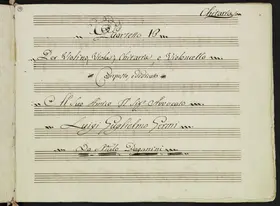 Chitarra
Quartetto
Per Violino, Viola, Chitarra, e Violoncello
Composto, e dedicato
Al Suo Amico Il Sig.r Avvocato
Luigi Guglielmo Germi
Da Nicolò Paganini